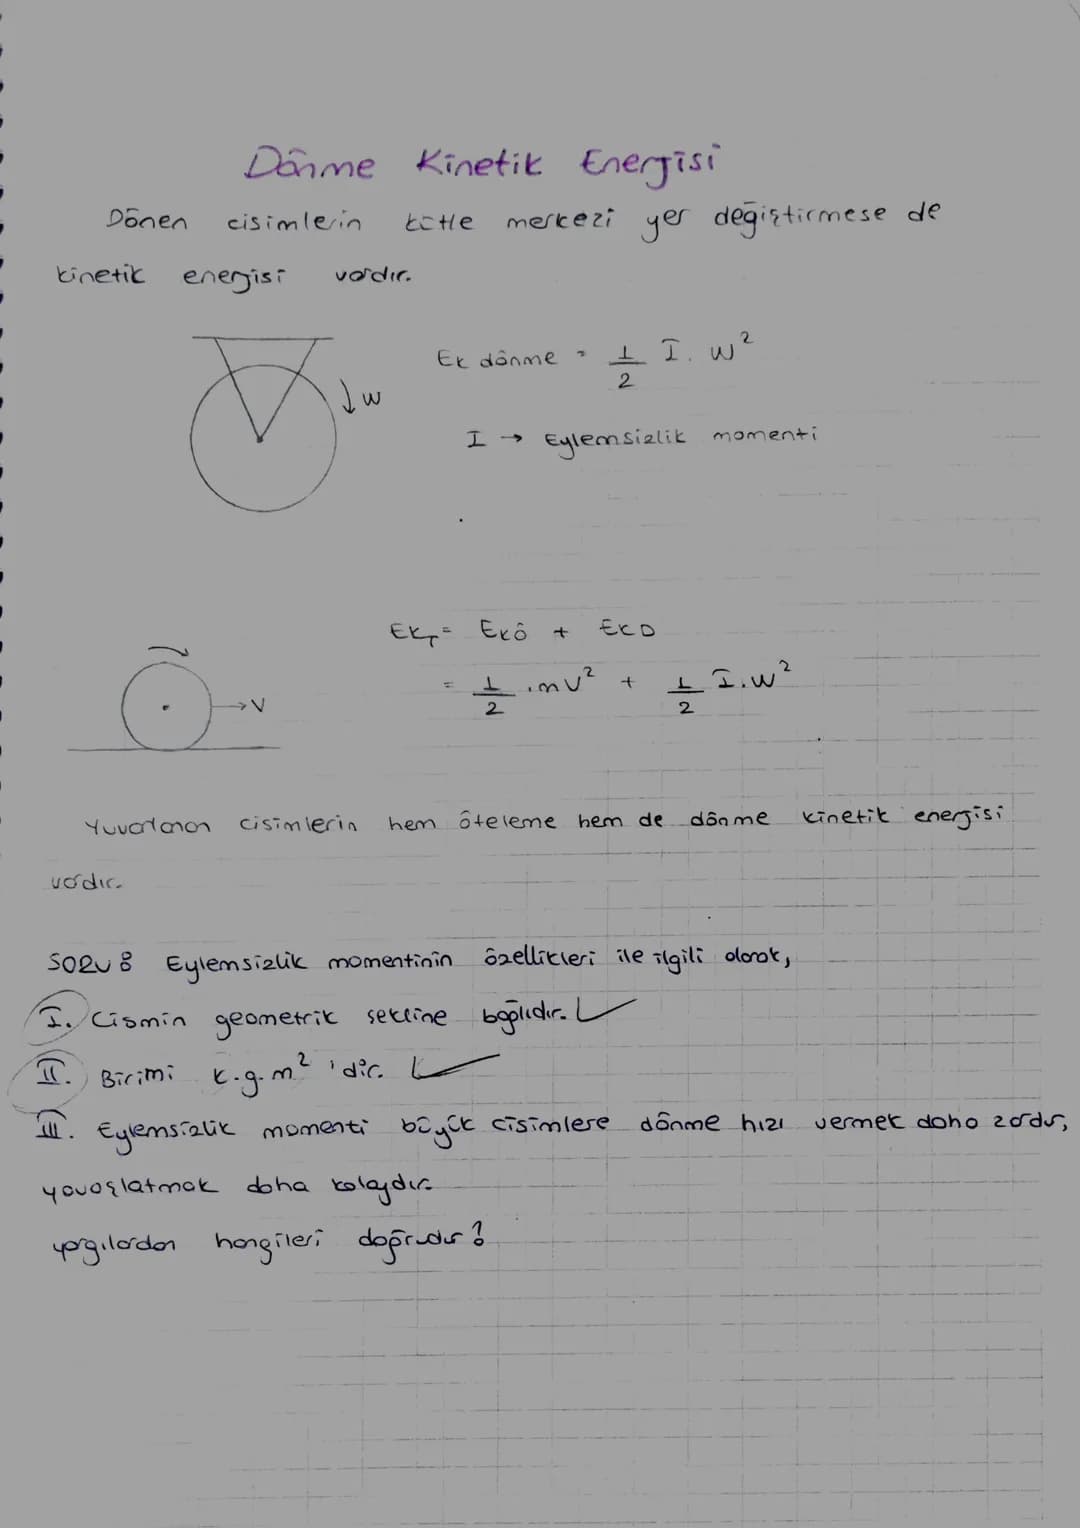 Dönme Kinetik Enerjisi
Dönen cisimlerin kütle merkezi yer değiştirmese de
kinetik enerjisi vardır.
Ek dönme = 1/2 I. W²
W
I → Eylemsizlik momenti
EkT = EKÖ + EKD
= 1/2 .mV² + 1/2 I.W²
→V
Yuvarlanan cisimlerin hem öteleme hem de dönme kinetik enerjisi
vardır.
SORU : Eylemsizlik momentinin özellikleri ile ilgili olarak,
I. Cismin geometrik şekline bağlıdır.
II. Birimi k.g.m² 'dir.
III. Eylemsizlik momenti büyük cisimlere dönme hızı vermek daha zordur,
yavaşlatmak daha kolaydır.
yargılardan hangileri doğrudur?